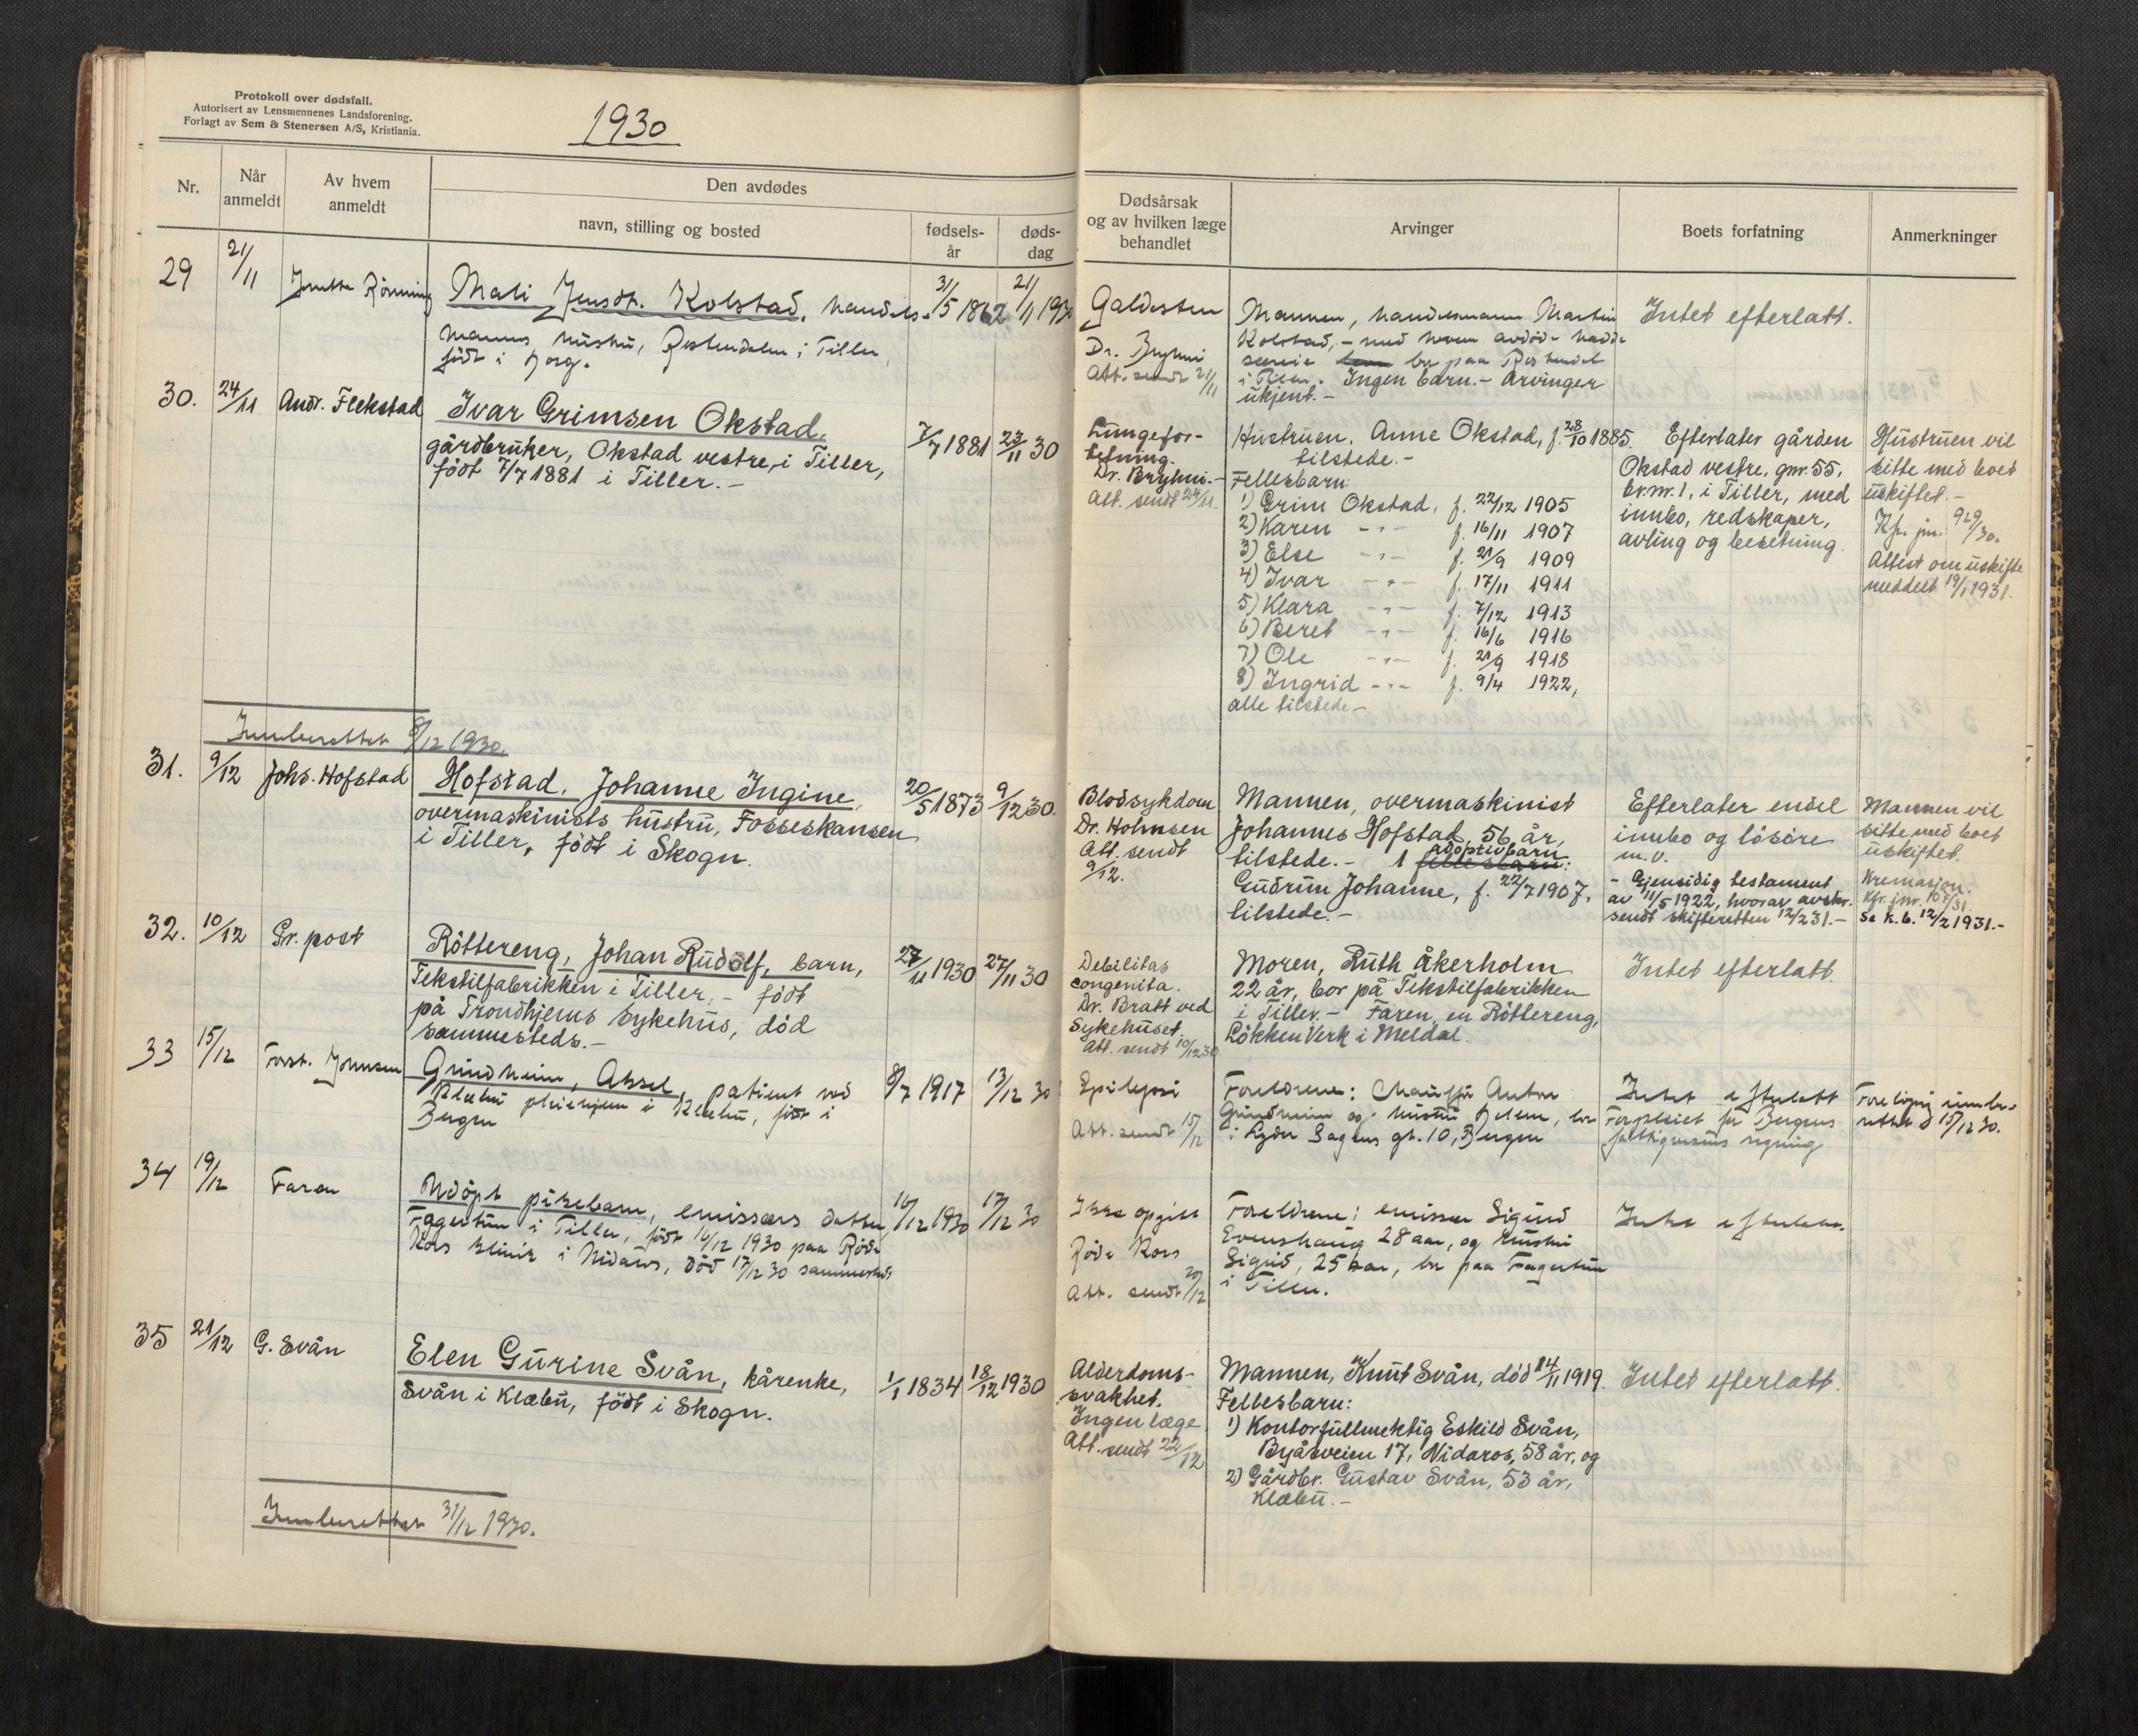 Protokoll over dødsfall.
Autorisert av Lensmennenes Landsforening.
Forlagt av Sem & Stenersen A/S, Kristiania.
1930
Nr.
Når
anmeldt
Av hvem
anmeldt
Den avdødes
navn, stilling og bosted
fødsels-
år
døds-
dag
Dødsårsak
og av hvilken læge
behandlet
Arvinger
Boets forfatning
Anmerkninger
29
21/11
Rönning
Mali Jensdt. Kolstad, handels-
manns hustru, i Tiller,
födt i Horg.
31/5 1862
21/11 1930
Galdesten
Dr. Bryhni
Att. sendt 21/11
Mannen, handelsmann Martin
Kolstad, - med hvem avdöde hadde
særeie bor paa
i Tiller. Ingen barn. - Arvinger
ukjent. -
Intet efterlatt.
30.
24/11
Andr. Flekstad
Ivar Grimsen Okstad,
gårdbruker, Okstad vestre, i Tiller,
födt 7/7 1881 i Tiller. -
7/7 1881
23/11 30
Lungefor-
tetning.
Dr. Bryhni. -
Att. sendt 24/11.
Hustruen, Anne Okstad, f. 28/10 1885
tilstede. -
Fellesbarn:
1) Grim Okstad, f. 22/12 1905
2) Karen -"- f. 16/11 1907
3) Else -"- f. 21/9 1909
4) Ivar -"- f. 17/11 1911
5) Klara -"- f. 7/12 1913
6) Beret -"- f. 16/6 1916
7) Ole -"- f. 21/9 1918
8) Ingrid -"- f. 9/4 1922,
alle tilstede -
Efterlater gården
Okstad vestre, gnr. 55,
br.nr. 1, i Tiller, med
innbo, redskaper,
avling og besetning.
Hustruen vil
sitte med boet
uskiftet. -
Kfr. jnr. 929/30.
Attest om uskifte
meddelt 19/1 1931.
Innberettet 8/12 1930.
31.
9/12
Johs. Hofstad
Hofstad, Johanne Ingine,
overmaskinists hustru, Fosseskansen
i Tiller, födt i Skogn.
20/5 1873
9/12 30.
Blodsykdom
Dr. Holmsen
Att. sendt
9/12.
Mannen, overmaskinist
Johannes Hofstad, 56 år,
tilstede. - 1 fellesbarn: adoptivbarn
Gudrun Johanne, f. 22/7 1907,
tilstede. -
Efterlater endel
innbo og lösöre
m.v.
- Gjensidig testament
av 11/5 1922, hvorav avskr.
sendt skifteretten 12/2 31. -
Mannen vil
sitte med boet
uskiftet.
Kremasjon.
Kfr. jnr. 107/31.
Se k. b. 12/2 1931. -
32.
10/12
Pr. post
Röttereng, Johan Rudolf, barn,
Tekstilfabrikken i Tiller, - födt
på Trondhjems Sykehus, död
sammesteds. -
27/11 1930
27/11 30
Debilitas
congenita.
Dr. Bratt ved
Sykehuset.
Att. sendt 10/12 30
Moren, Ruth Åkerholm
22 år, bor på Tekstilfabrikken
i Tiller. - Faren, en Röttereng,
Lökken Verk i Meldal.
Intet efterlatt.
33
15/12
Forst. Johnsen
Grindheim, Aksel, patient ved
Klæbu pleiehjem i Klæbu, födt i
Bergen
8/7 1917
13/12 30
Epilepsi
Att. sendt 15/12
Foreldrene: Chauffør Anton
Grindheim og hustru Helene, bor
i Lyder Sagens gt. 10, Bergen
Intet efterlatt
Forpleiet for Bergens
fattigvesens regning
Forelöpig innbe-
rettet d 15/12 30.
34
19/12
Faren
Udöpt pikebarn, emissærs datter
Fagertun i Tiller, födt 16/12 1930 paa Röde
Kors klinik i Nidaros, död 17/12 30 sammesteds
16/12 1930
17/12 30
Ikke opgitt
Röde Kors
Att. sendt 20/12
Foreldrene: emissær Sigurd
Evenshaug 28 aar, og hustru
Sigrid, 25 aar, bor paa Fagertun
i Tiller.
Intet efterlatt.
35
21/12
G. Svån
Elen Gurine Svån, kårenke,
Svån i Klæbu, födt i Skogn.
1/1 1834
18/12 1930
Alderdoms-
svakhet.
Ingen læge
Att. sendt 22/12
Mannen, Knut Svån, död 14/11 1919.
Fellesbarn:
1) Kontorfullmektig Eskild Svån,
Byåsveien 17, Nidaros, 58 år, og
2) Gårdbr. Gustav Svån, 53 år,
Klæbu. -
Intet efterlatt.
Innberettet 31/12 1930.